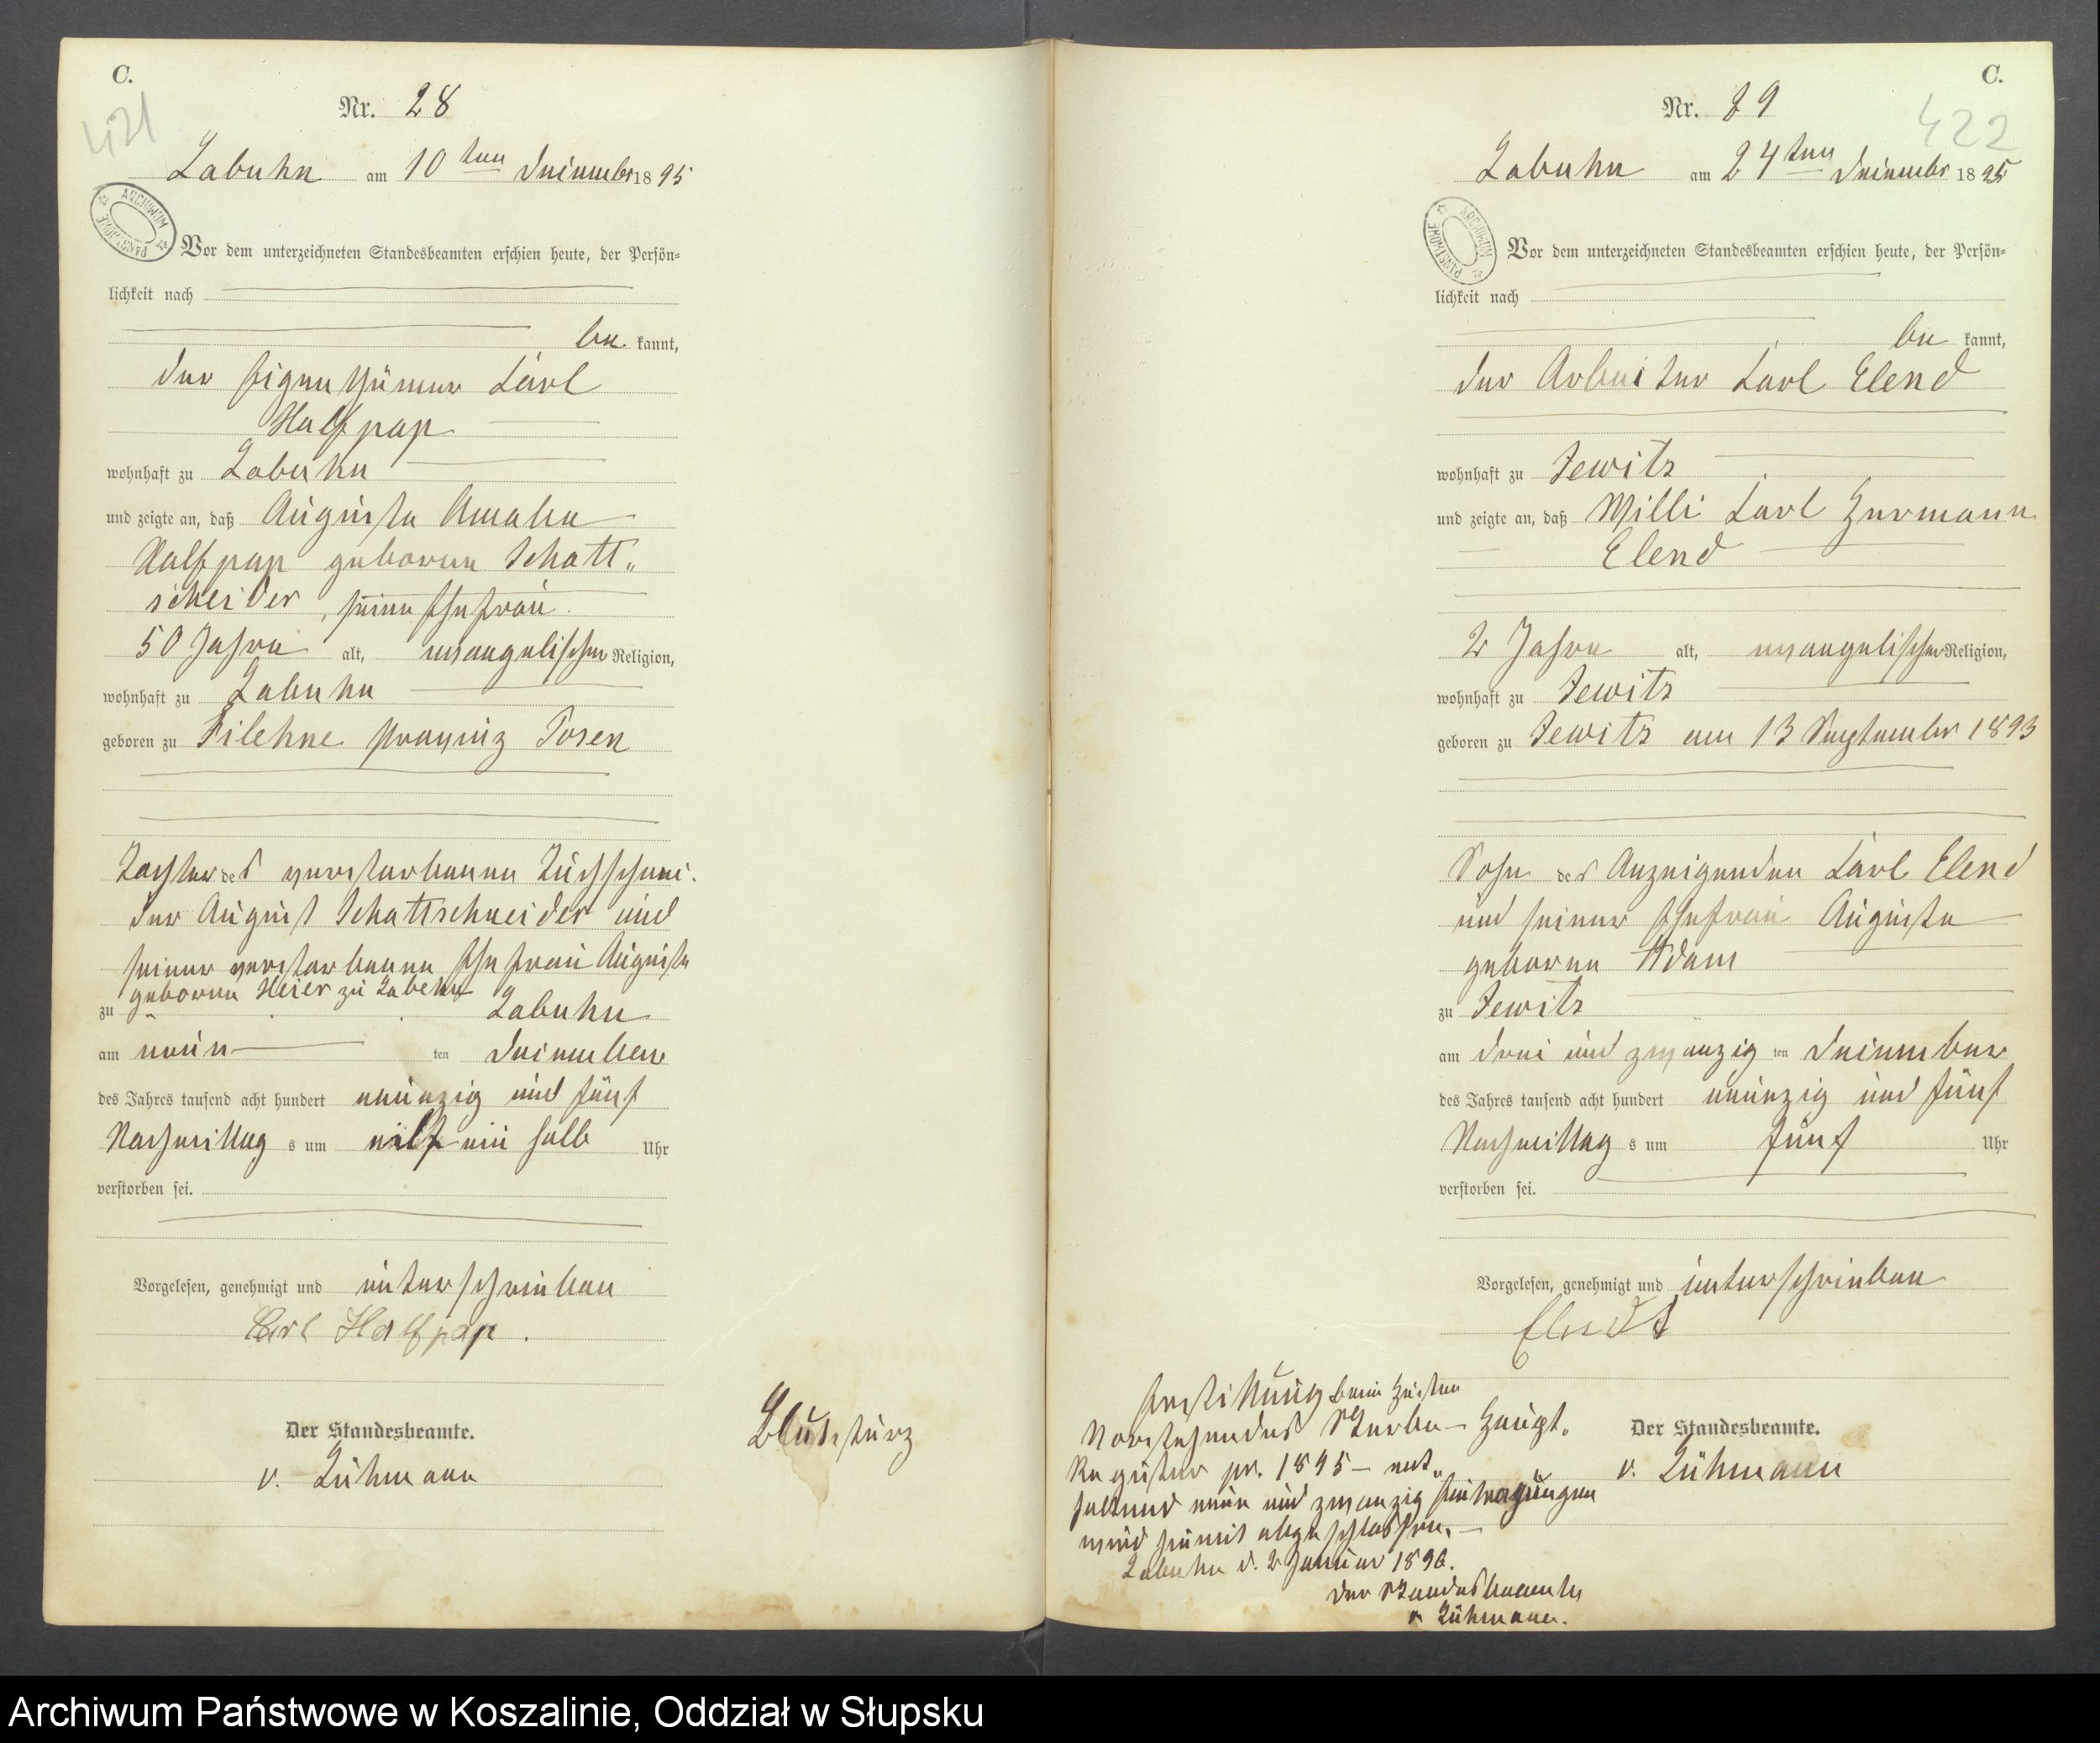 C.
421
Nr. 28
Labuhn am 10ten Dezember 1895
ARCHIWUM PAŃSTWOWE
Vor dem unterzeichneten Standesbeamten erschien heute, der Persön-
lichkeit nach
bekannt,
der Eigenthümer Carl
Halfpap
wohnhaft zu Labuhn
und zeigte an, daß Auguste Amalie
Halfpap geborene Schatt„
scheider, seine Ehefrau
50 Jahre alt, evangelischer Religion,
wohnhaft zu Labuhn
geboren zu Filehne Provinz Posen
Tochter des verstorbenen Tuchschnei-
der August Schattschneider und
seiner verstorbenen Ehefrau Auguste
geborene Meier zu
zu Labuhn
am neun ten Dezember
des Jahres tausend acht hundert neunzig und fünf
Nachmittags um elf ein halb Uhr
verstorben sei.
Vorgelesen, genehmigt und unterschrieben
Carl Halfpap.
Der Standesbeamte.
v. Lühmann
Blutsturz
C.
422
Nr. 29
Labuhn am 24ten Dezember 1895
ARCHIWUM PAŃSTWOWE
Vor dem unterzeichneten Standesbeamten erschien heute, der Persön-
lichkeit nach
bekannt,
der Arbeiter Carl Elend
wohnhaft zu Jewitz
und zeigte an, daß Willi Carl Hermann
Elend
2 Jahre alt, evangelischer Religion,
wohnhaft zu Jewitz
geboren zu Jewitz am 13 September 1893
Sohn des Anzeigenden Carl Elend
und seiner Ehefrau Auguste
geborene Adam
zu Jewitz
am drei und zwanzig ten Dezember
des Jahres tausend acht hundert neunzig und fünf
Nachmittags um fünf Uhr
verstorben sei.
Vorgelesen, genehmigt und unterschrieben
Der Standesbeamte.
v. Lühmann
Erstickung beim Husten
Vorstehendes Sterbe-Haupt„
Register pr. 1895 – ent„
haltend neun und zwanzig Eintragungen
wird hiermit abgeschlossen.
Labuhn d. 2 Januar 1896.
Der Standesbeamte
v Lühmann.
Archiwum Państwowe w Koszalinie, Oddział w Słupsku